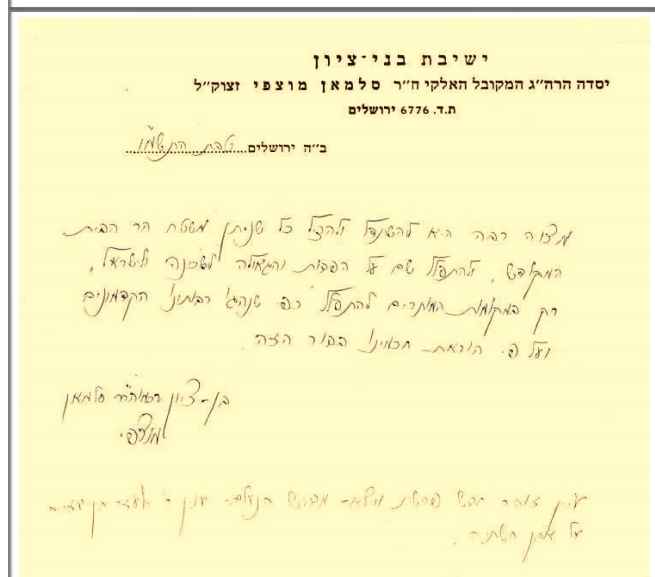 ישיבת בני־ציון
יסדה הרה״ג המקובל האלקי ח״ר סלמאן מוצפי זצוק״ל
ת.ד. 6776 ירושלים
ב״ה ירושלים טבת התשמ״ו
מצוה רבה היא להשתדל ולהציל כל שניתן משטח הר הבית
המקודש, ולהתפלל שם על רפבות והגאולה לשכינה ולישראל,
רק במקומות המותרים להתפלל כפי שנהגו רבותינו הקדמונים
ועל פי הוראת חכמינו בדור הזה.
בן-ציון סלמאן
מוצפי
עיין זוהר חדש פרשת מדרש הנעלם
על אבן השתיה.